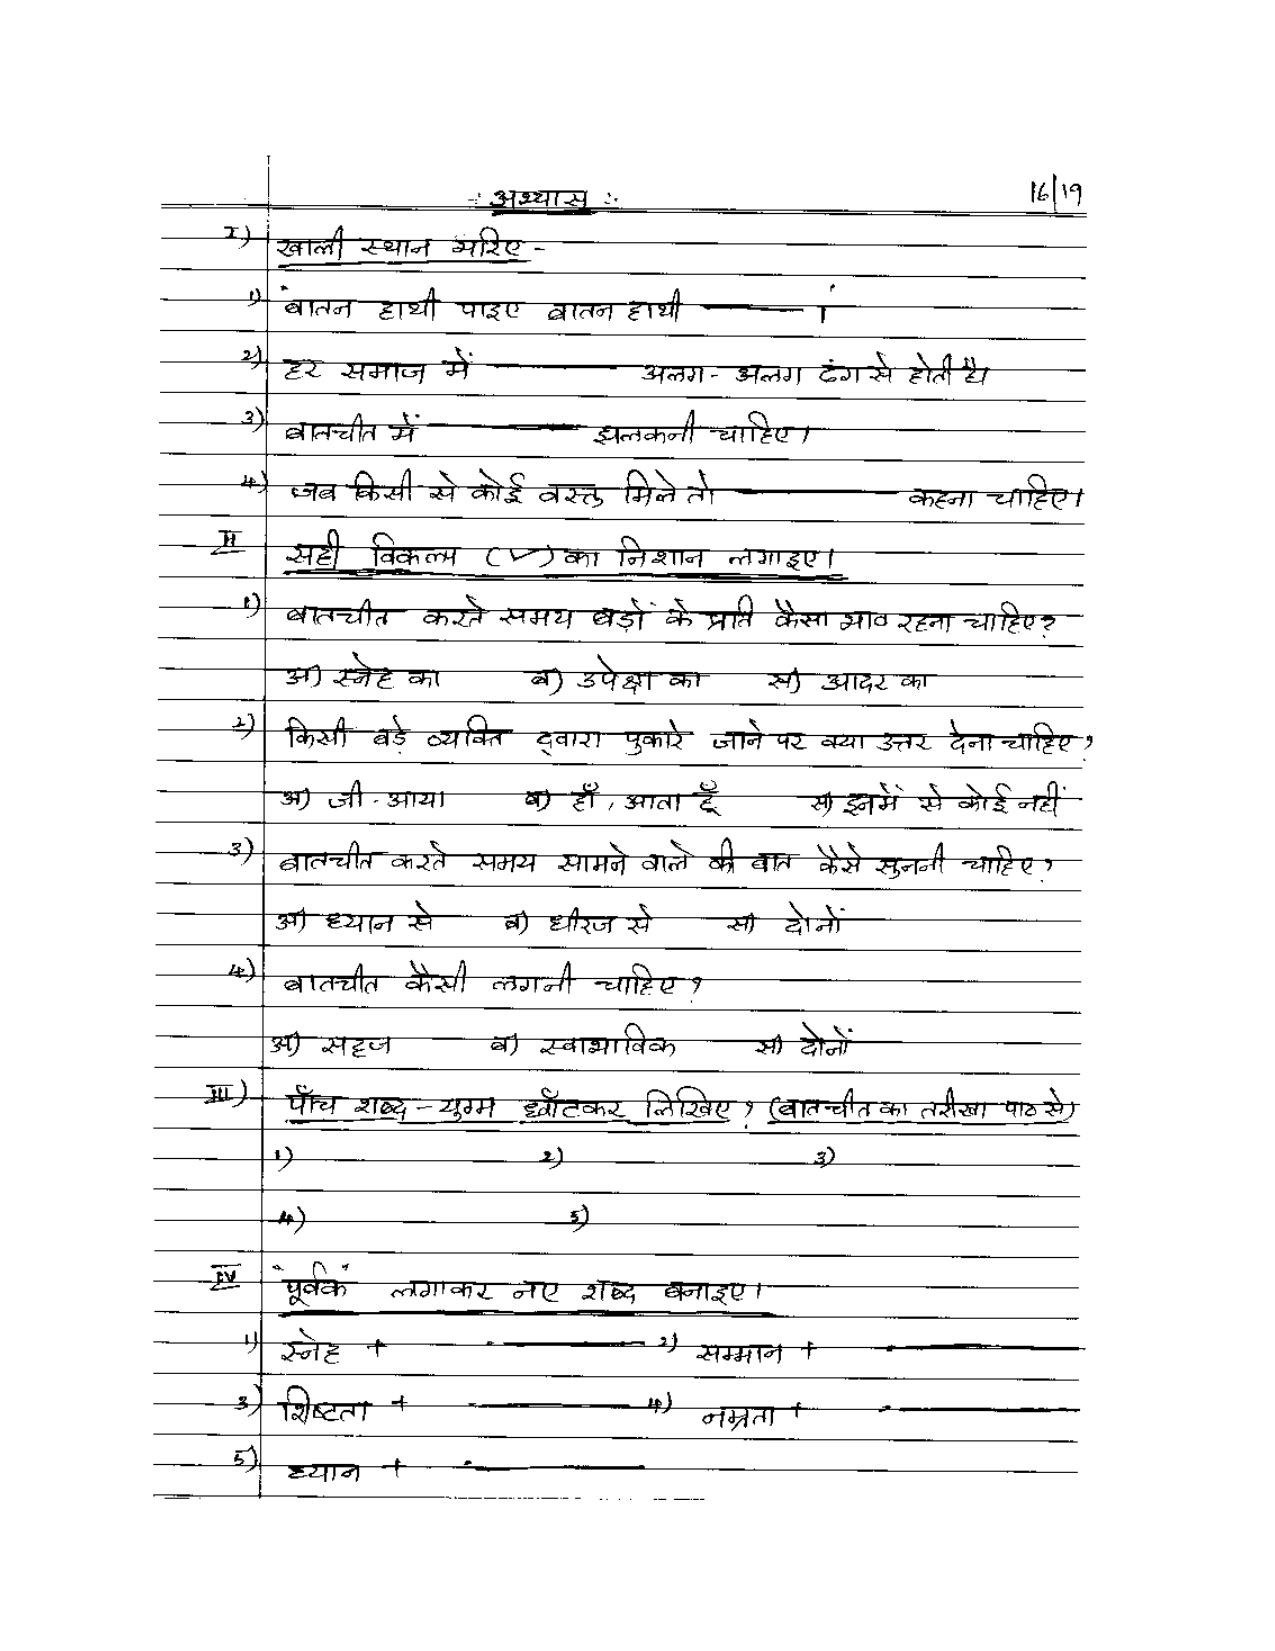 -: अभ्यास :-
16/19
I) खाली स्थान भरिए -
1) "बातन हाथी पाइए बातन हाथी ——— ।'
2) हर समाज में ——— अलग - अलग ढंग से होती है।
3) बातचीत में ——— झलकनी चाहिए।
4) जब किसी से कोई वस्तु मिले तो ——— कहना चाहिए।
II सही विकल्प (✓) का निशान लगाइए।
1) बातचीत करते समय बड़ों के प्रति कैसा भाव रहना चाहिए?
अ) स्नेह का ब) उपेक्षा का स) आदर का
2) किसी बड़े व्यक्ति द्वारा पुकारे जाने पर क्या उत्तर देना चाहिए?
अ) जी - आया ब) हाँ, आता हूँ स) इनमें से कोई नहीं
3) बातचीत करते समय सामने वाले की बात कैसे सुननी चाहिए?
अ) ध्यान से ब) धीरज से स) दोनों
4) बातचीत कैसी लगनी चाहिए?
अ) सहज ब) स्वाभाविक स) दोनों
III) पाँच शब्द - युग्म छाँटकर लिखिए? (बातचीत का तरीका पाठ से)
1) 2) 3)
4) 5)
IV "पूर्वक" लगाकर नए शब्द बनाइए।
1) स्नेह + ——— 2) सम्मान + ———
3) शिष्टता + ——— 4) नम्रता + ———
5) ध्यान + ———